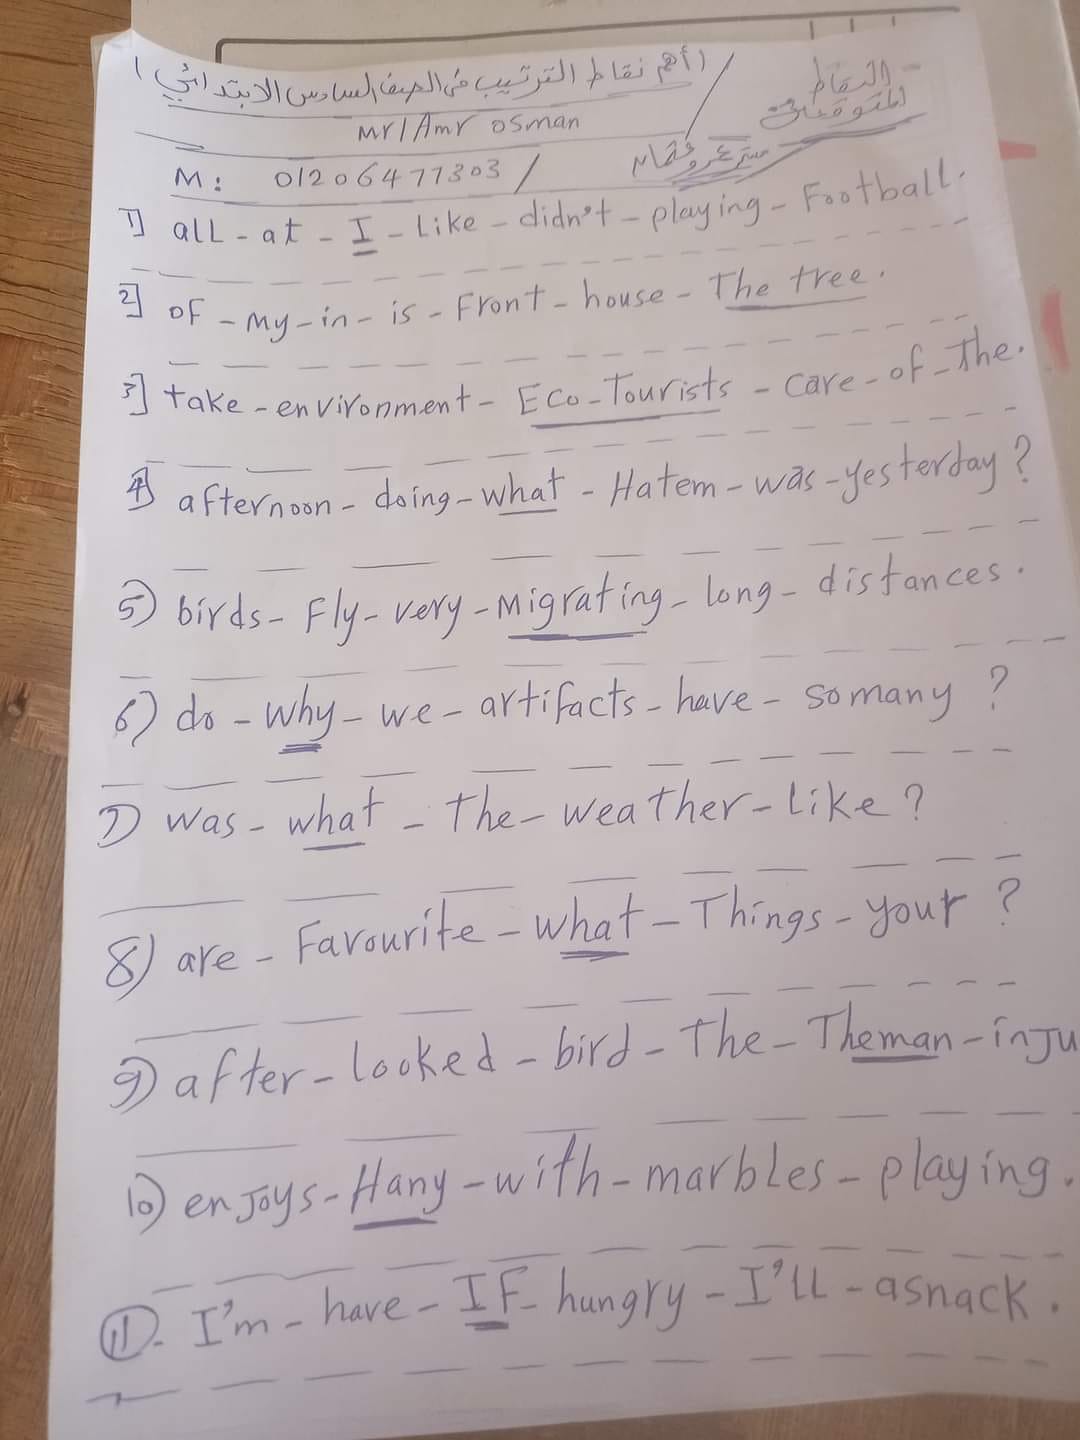 (أهم نقاط الترتيب في الصف السادس الابتدائي)
النقاط
Mr/Amr osman
M: 01206477303 /
1] all - at - I - Like - didn't - playing - Football.
2] of - My - in - is - Front - house - The tree.
3] take - environment - Eco-Tourists - care - of - The.
4] afternoon - doing - what - Hatem - was - yesterday ?
5) birds - Fly - very - Migrating - long - distances.
6) do - why - we - artifacts - have - so many ?
7) was - what - The - weather - like ?
8) are - Favourite - what - Things - your ?
9) after - looked - bird - The - The man - inju
10) enjoys - Hany - with - marbles - playing.
11. I'm - have - IF - hungry - I'll - a snack.